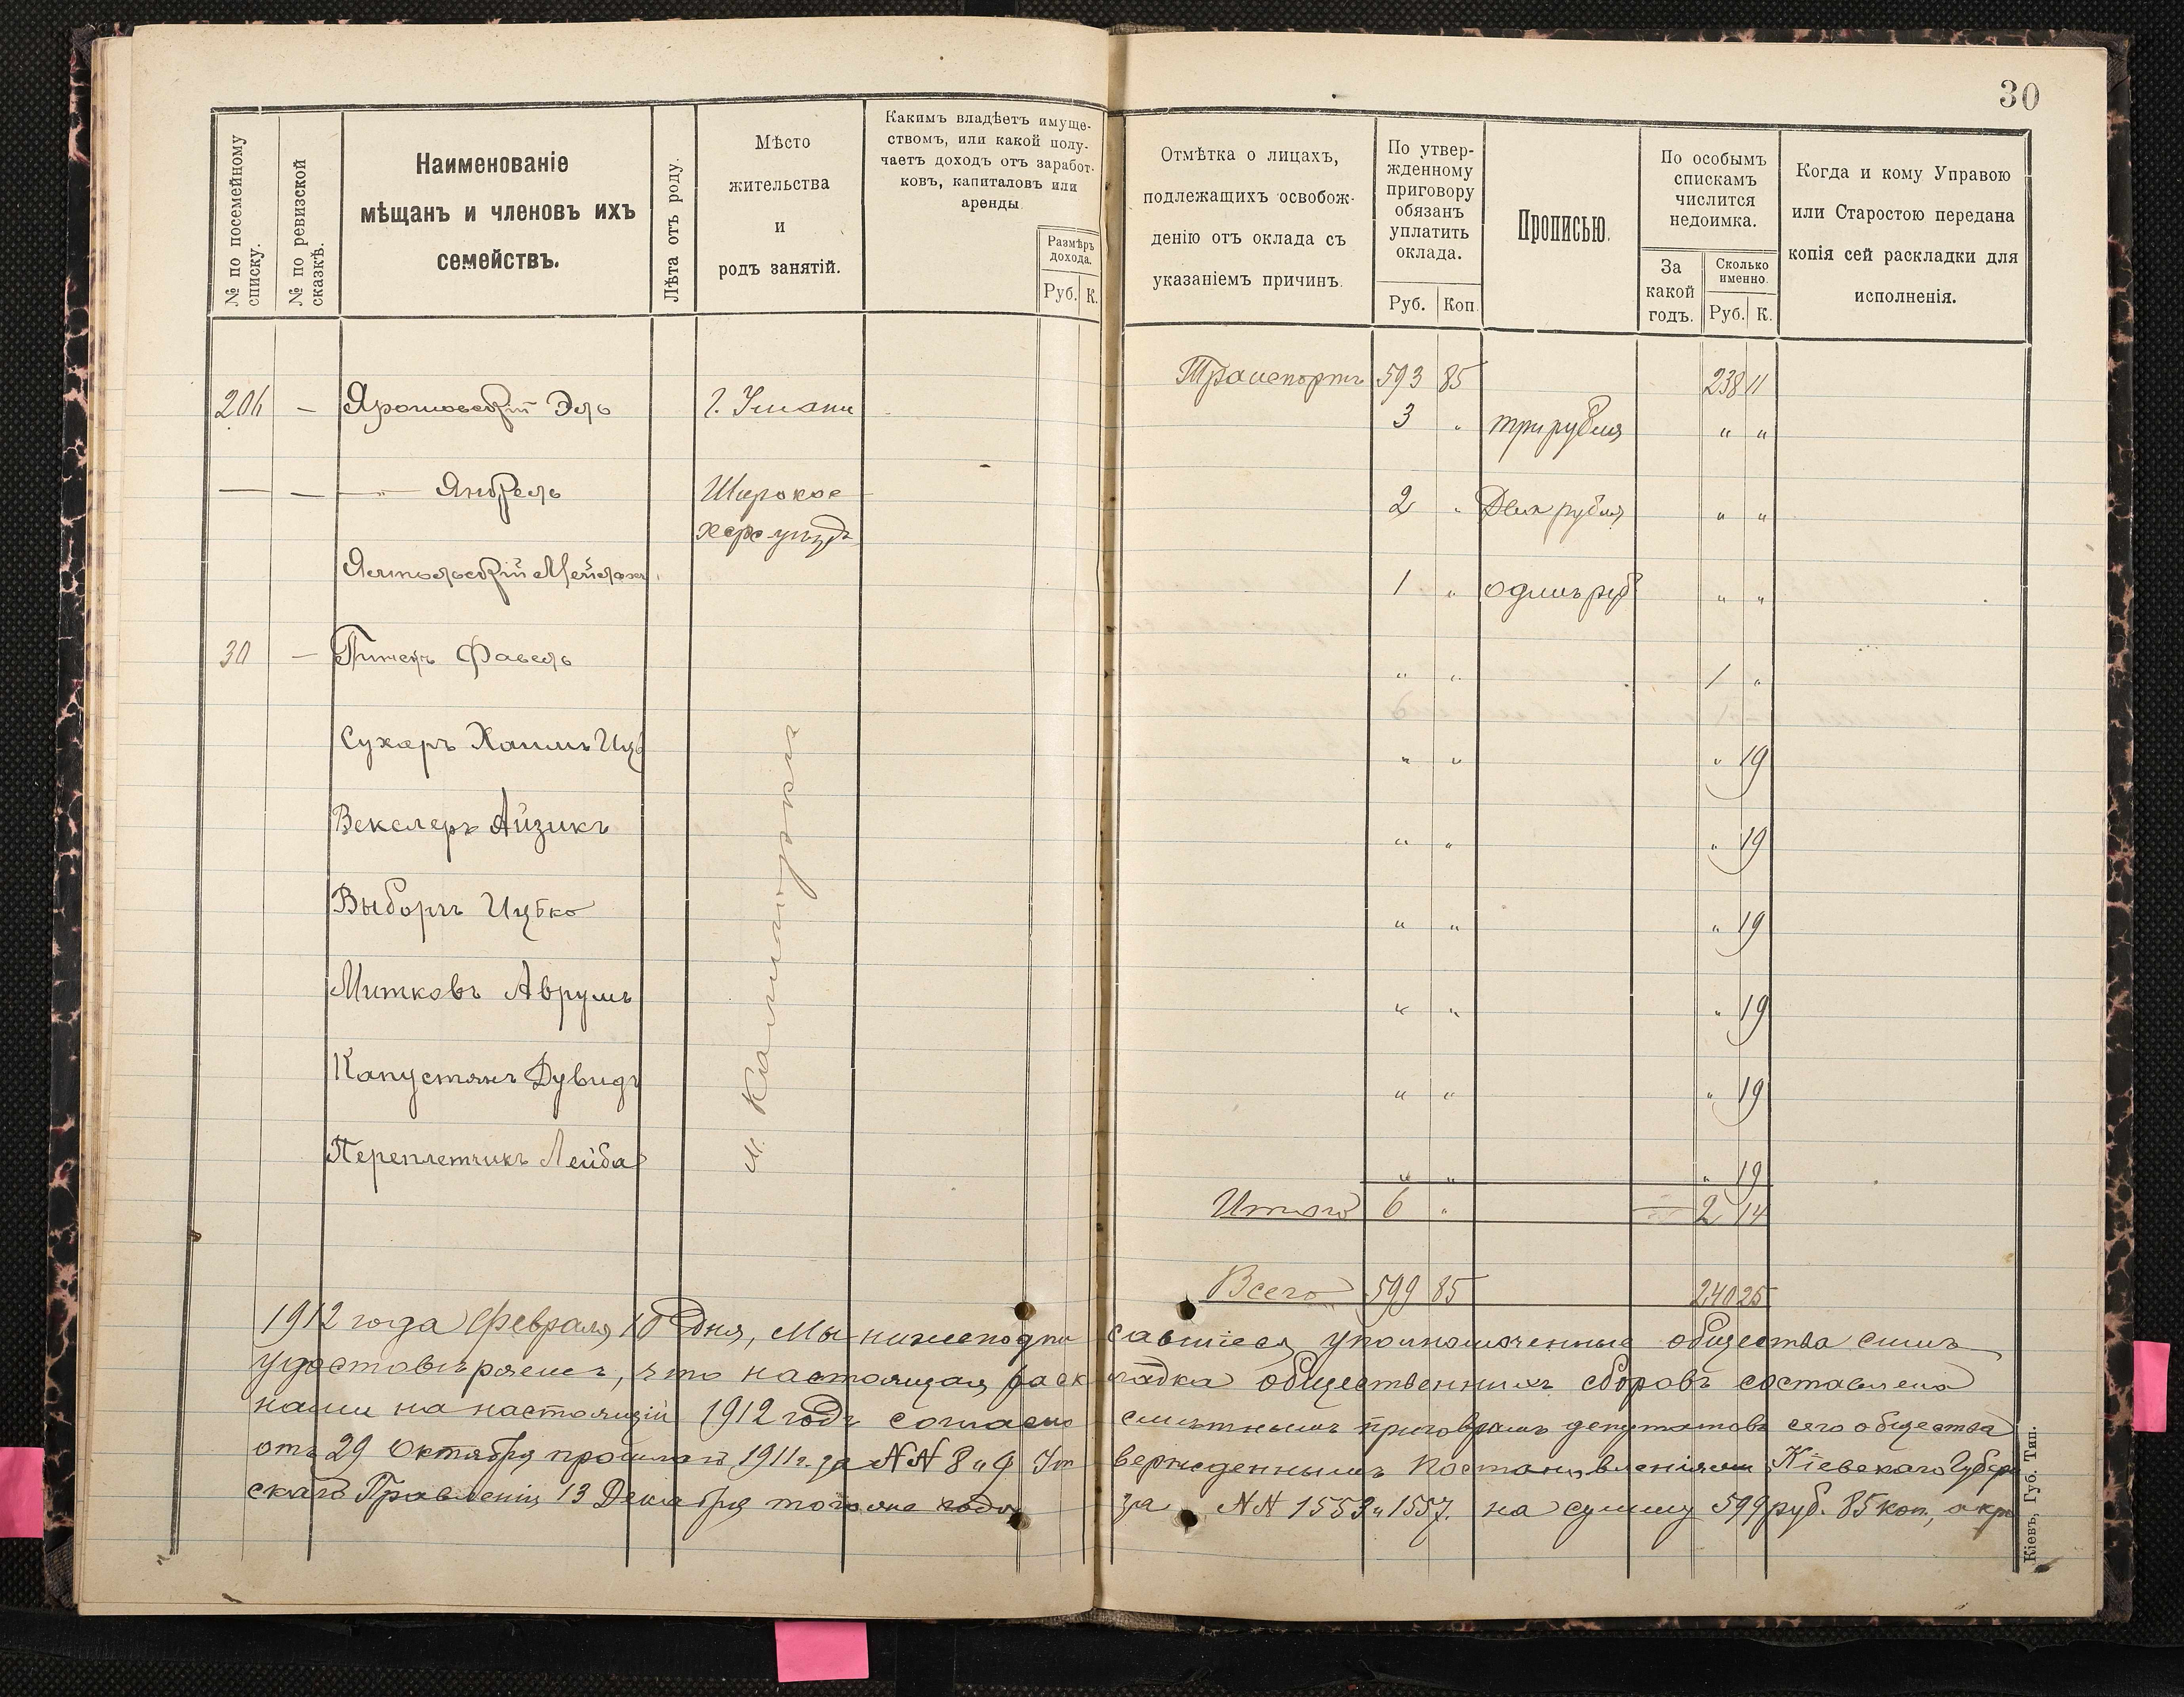 30
№ по посемейному списку.
№ по ревизской сказкѣ.
Наименованіе
мѣщанъ и членовъ ихъ
семействъ.
Лѣта отъ роду.
Мѣсто
жительства
и
родъ занятій.
Какимъ владѣетъ имуще-
ствомъ, или какой полу-
чаетъ доходъ отъ заработ-
ковъ, капиталовъ или
аренды
Размѣръ
дохода.
Руб. К.
Отмѣтка о лицахъ,
подлежащихъ освобож-
денію отъ оклада съ
указаніемъ причинъ.
По утвер-
жденному
приговору
обязанъ
уплатить
оклада.
Руб. Коп.
Прописью.
По особымъ
спискамъ
числится
недоимка.
За
какой
годъ.
Сколько
именно.
Руб. К.
Когда и кому Управою
или Старостою передана
копія сей раскладки для
исполненія.
Транспортъ 593 85 238 11
206 — Ярошовскій Эль г. Умани 3 „ три рубля „ „
— — —„— Янкель Широкое 2 „ Два рубля „ „
херс уѣзд
Ямпольскій Мейлахъ 1 „ одинъ руб „ „
30 — Файвель „ „ 1 „
Сухаръ Хаимъ Иц „ „ „ 19
Векслеръ Айзикъ „ „ „ 19
Выборъ Ицко „ „ „ 19
Митковъ Аврумъ „ „ „ 19
Капустянъ Дувидъ „ „ „ 19
Переплетчикъ Лейба „ „ „ 19
м.
Итого 6 „ 2 14
Всего 599 85 240 25
1912 года Февраля 10 дня, Мы нижеподписавшіеся уполномоченные общества симъ
удостовѣряемъ, что настоящая раскладка общественныхъ сборовъ составлена
нами на настоящій 1912 годъ согласно смѣтнымъ приговорамъ депутатовъ сего общества
отъ 29 Октября прошлаго 1911 г. за NN 8 и 9 Утвержденнымъ Постановленіями Кіевскаго Губерн
скаго Правленія 13 Декабря того же года за NN 1553 и 1557. на сумму 599 руб. 85 коп., а кр
Кіевъ, Губ. Тип.